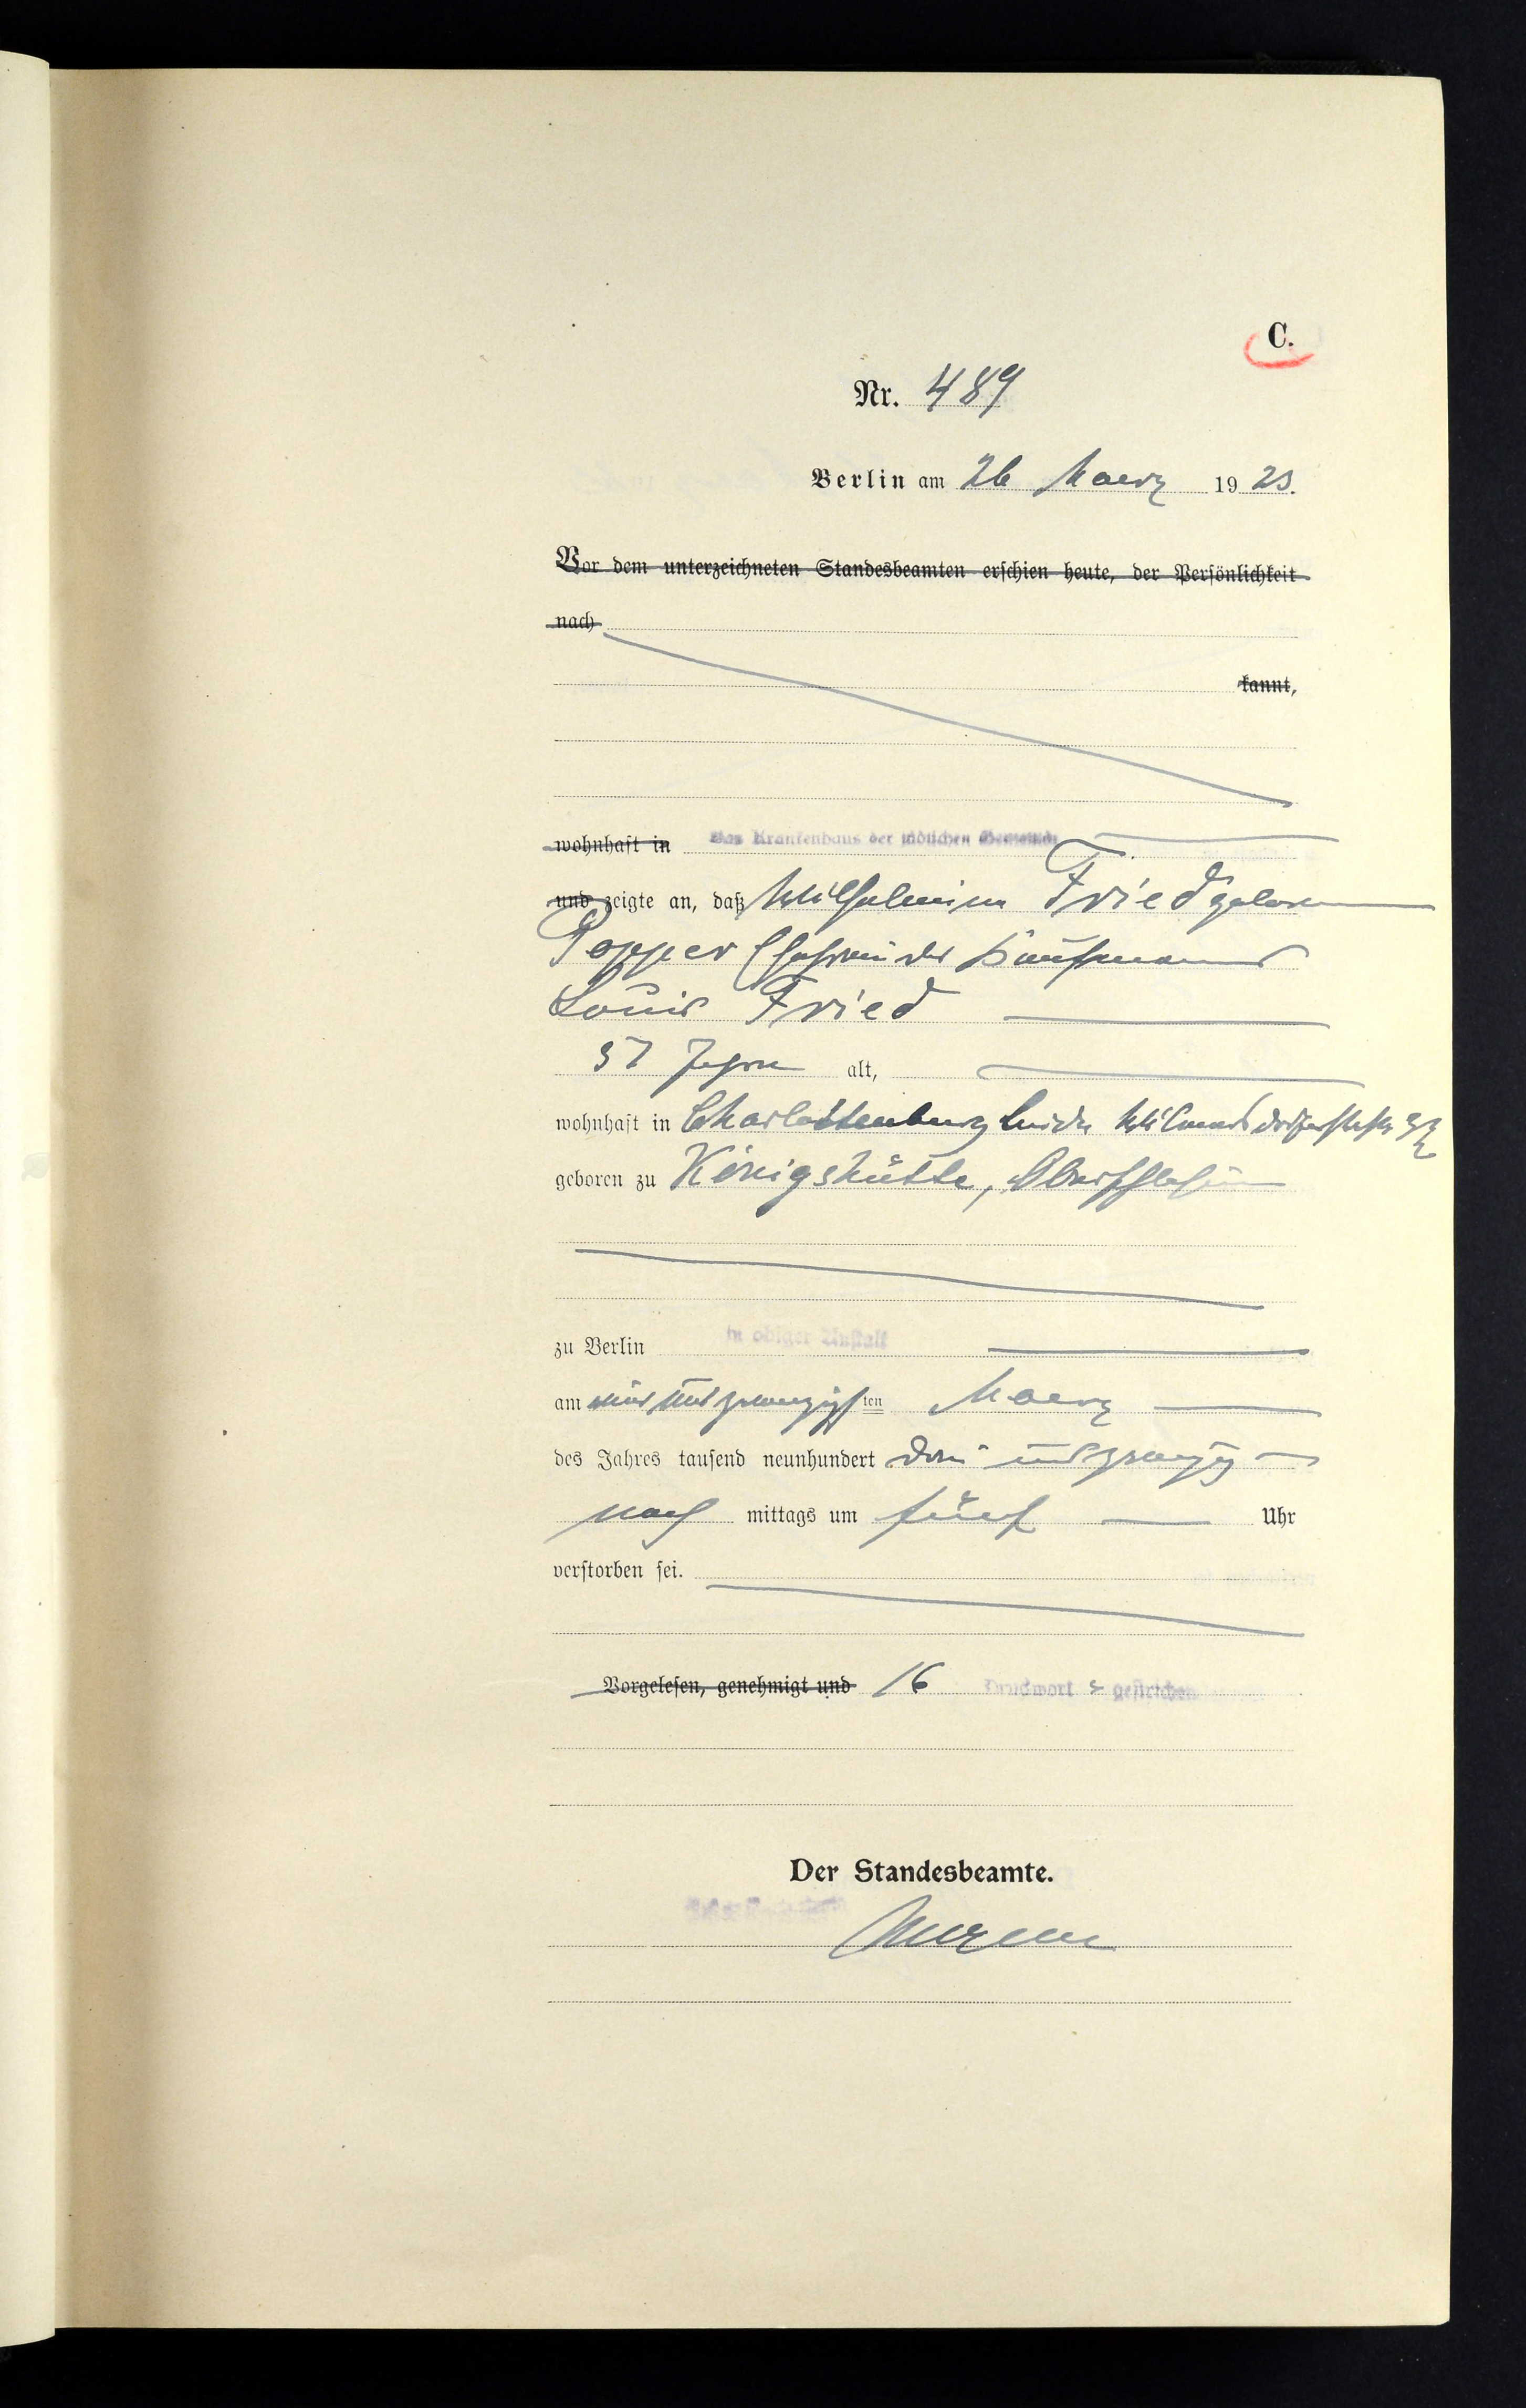 C.
Nr. 489
Berlin am 26 Maerz 1923.
Vor dem unterzeichneten Standesbeamten erschien heute, der Persönlichkeit
nach
kannt,
wohnhaft in Das Krankenhaus der jüdischen Gemeinde
und zeigte an, daß Wilhelmine Fried geborene
Popper Ehefrau des Kaufmanns
Louis Fried
57 Jahre alt,
wohnhaft in Charlottenburg beide Wilmersdorferstraße
geboren zu Königshütte, Oberschlesien
zu Berlin in obiger Anstalt
am und zwanzigsten Maerz
des Jahres tausend neunhundert drei und zwanzig
nach mittags um fünf Uhr
verstorben sei.
Vorgelesen, genehmigt und 16 Druckwort e gestrichen
Der Standesbeamte.